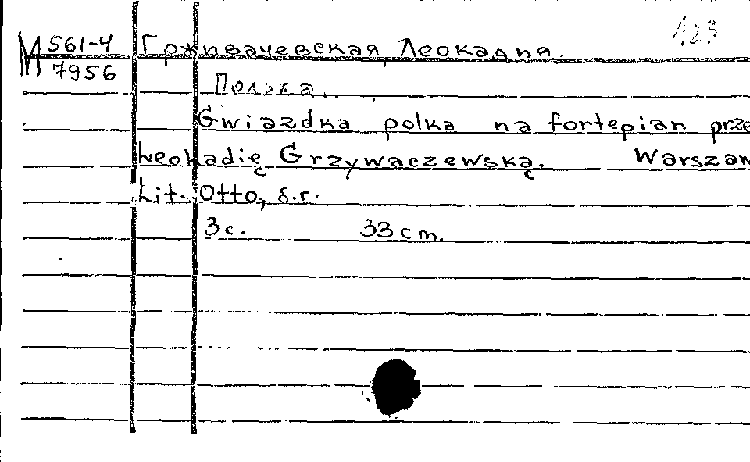 М 561-4 Грживачевская Леокадия. 123
7956
Полька.
Gwiazdka polka na fortepian prze
Leokadię Grzywaczewską. Warszaw
Lit. Otto, s.r.
3 с. 33 cm.